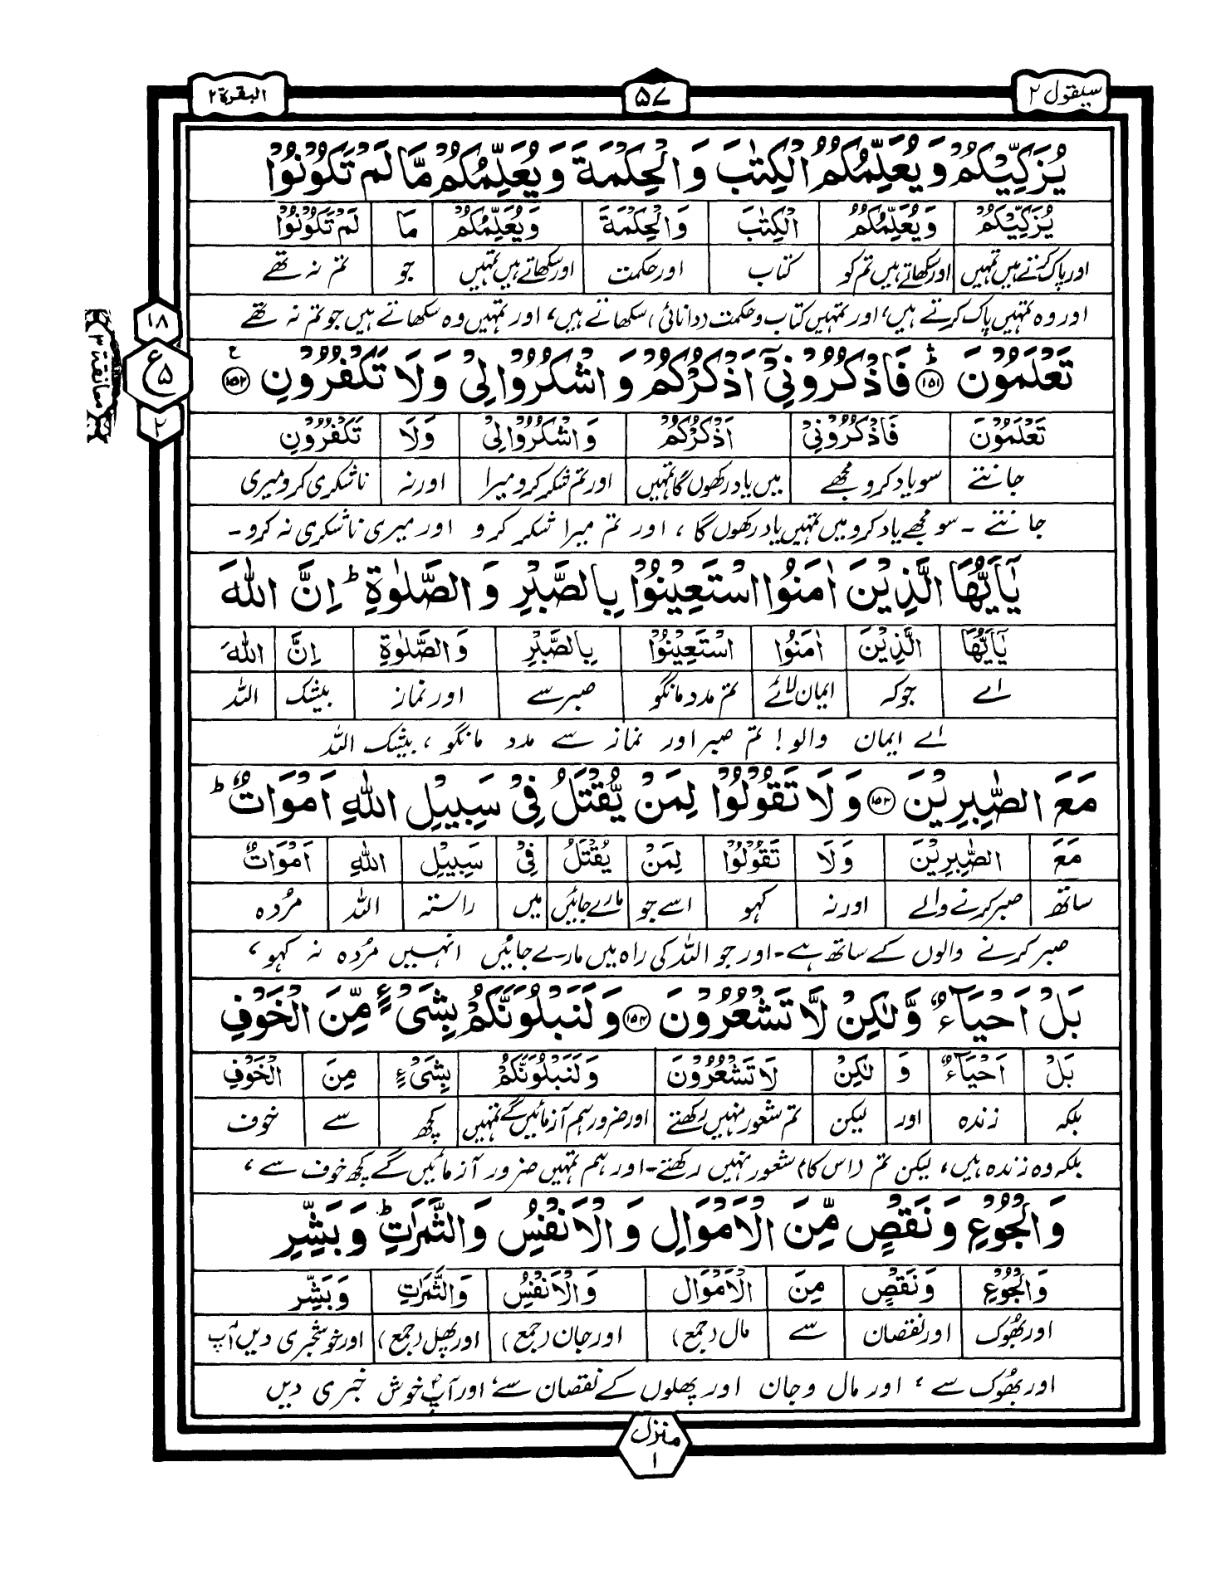 سیقول ۲
۵۷
البقرة ۲
يُزَكِّيْكُمْ وَيُعَلِّمُكُمُ الْكِتٰبَ وَالْحِكْمَةَ وَيُعَلِّمُكُمْ مَّا لَمْ تَكُوْنُوْا
يُزَكِّيْكُمْ وَيُعَلِّمُكُمُ الْكِتٰبَ وَالْحِكْمَةَ وَيُعَلِّمُكُمْ مَا لَمْ تَكُوْنُوْا
اور پاک کرتے ہیں تمہیں اور سکھاتے ہیں تم کو کتاب اور حکمت اور سکھاتے ہیں تمہیں جو تم نہ تھے
اور وہ تمہیں پاک کرتے ہیں، اور تمہیں کتاب و حکمت (دانائی) سکھاتے ہیں، اور تمہیں وہ سکھاتے ہیں جو تم نہ تھے
۱۸
ع
۵
۲
معانقة ۳
تَعْلَمُوْنَ ۛ ۱۵۱ فَاذْكُرُوْنِيْٓ اَذْكُرْكُمْ وَاشْكُرُوْا لِيْ وَلَا تَكْفُرُوْنِ ۱۵۲ ع
تَعْلَمُوْنَ فَاذْكُرُوْنِيْ اَذْكُرْكُمْ وَاشْكُرُوْا لِيْ وَلَا تَكْفُرُوْنِ
جانتے سو یاد کرو مجھے میں یاد رکھوں گا تمہیں اور تم شکر کرو میرا اور نہ ناشکری کرو میری
جانتے ۔ سو مجھے یاد کرو میں تمہیں یاد رکھوں گا ، اور تم میرا شکر کرو اور میری ناشکری نہ کرو ۔
يٰۤاَيُّهَا الَّذِيْنَ اٰمَنُوا اسْتَعِيْنُوْا بِالصَّبْرِ وَالصَّلٰوةِ ؕ اِنَّ اللّٰهَ
يٰۤاَيُّهَا الَّذِيْنَ اٰمَنُوا اسْتَعِيْنُوْا بِالصَّبْرِ وَالصَّلٰوةِ اِنَّ اللّٰهَ
اے جو کہ ایمان لائے تم مدد مانگو صبر سے اور نماز بیشک اللہ
اے ایمان والو! تم صبر اور نماز سے مدد مانگو ، بیشک اللہ
مَعَ الصّٰبِرِيْنَ ۱۵۳ وَلَا تَقُوْلُوْا لِمَنْ يُّقْتَلُ فِيْ سَبِيْلِ اللّٰهِ اَمْوَاتٌ ؕ
مَعَ الصّٰبِرِيْنَ وَلَا تَقُوْلُوْا لِمَنْ يُقْتَلُ فِيْ سَبِيْلِ اللّٰهِ اَمْوَاتٌ
ساتھ صبر کرنے والے اور نہ کہو اسے جو مارے جائیں میں راستہ اللہ مُردہ
صبر کرنے والوں کے ساتھ ہے ۔ اور جو اللہ کی راہ میں مارے جائیں انہیں مُردہ نہ کہو ،
بَلْ اَحْيَآءٌ وَّلٰكِنْ لَّا تَشْعُرُوْنَ ۱۵۴ وَلَنَبْلُوَنَّكُمْ بِشَيْءٍ مِّنَ الْخَوْفِ
بَلْ اَحْيَآءٌ وَ لٰكِنْ لَا تَشْعُرُوْنَ وَلَنَبْلُوَنَّكُمْ بِشَيْءٍ مِنَ الْخَوْفِ
بلکہ زندہ اور لیکن تم شعور نہیں رکھتے اور ضرور ہم آزمائیں گے تمہیں کچھ سے خوف
بلکہ وہ زندہ ہیں، لیکن تم (اس کا) شعور نہیں رکھتے ۔ اور ہم تمہیں ضرور آزمائیں گے کچھ خوف سے ،
وَالْجُوْعِ وَنَقْصٍ مِّنَ الْاَمْوَالِ وَالْاَنْفُسِ وَالثَّمَرٰتِ ؕ وَبَشِّرِ
وَالْجُوْعِ وَنَقْصٍ مِنَ الْاَمْوَالِ وَالْاَنْفُسِ وَالثَّمَرٰتِ وَبَشِّرِ
اور بھوک اور نقصان سے مال (جمع) اور جان (جمع) اور پھل (جمع) اور خوشخبری دیں آپ
اور بھوک سے ، اور مال و جان اور پھلوں کے نقصان سے ، اور آپؐ خوش خبری دیں
منزل ۱